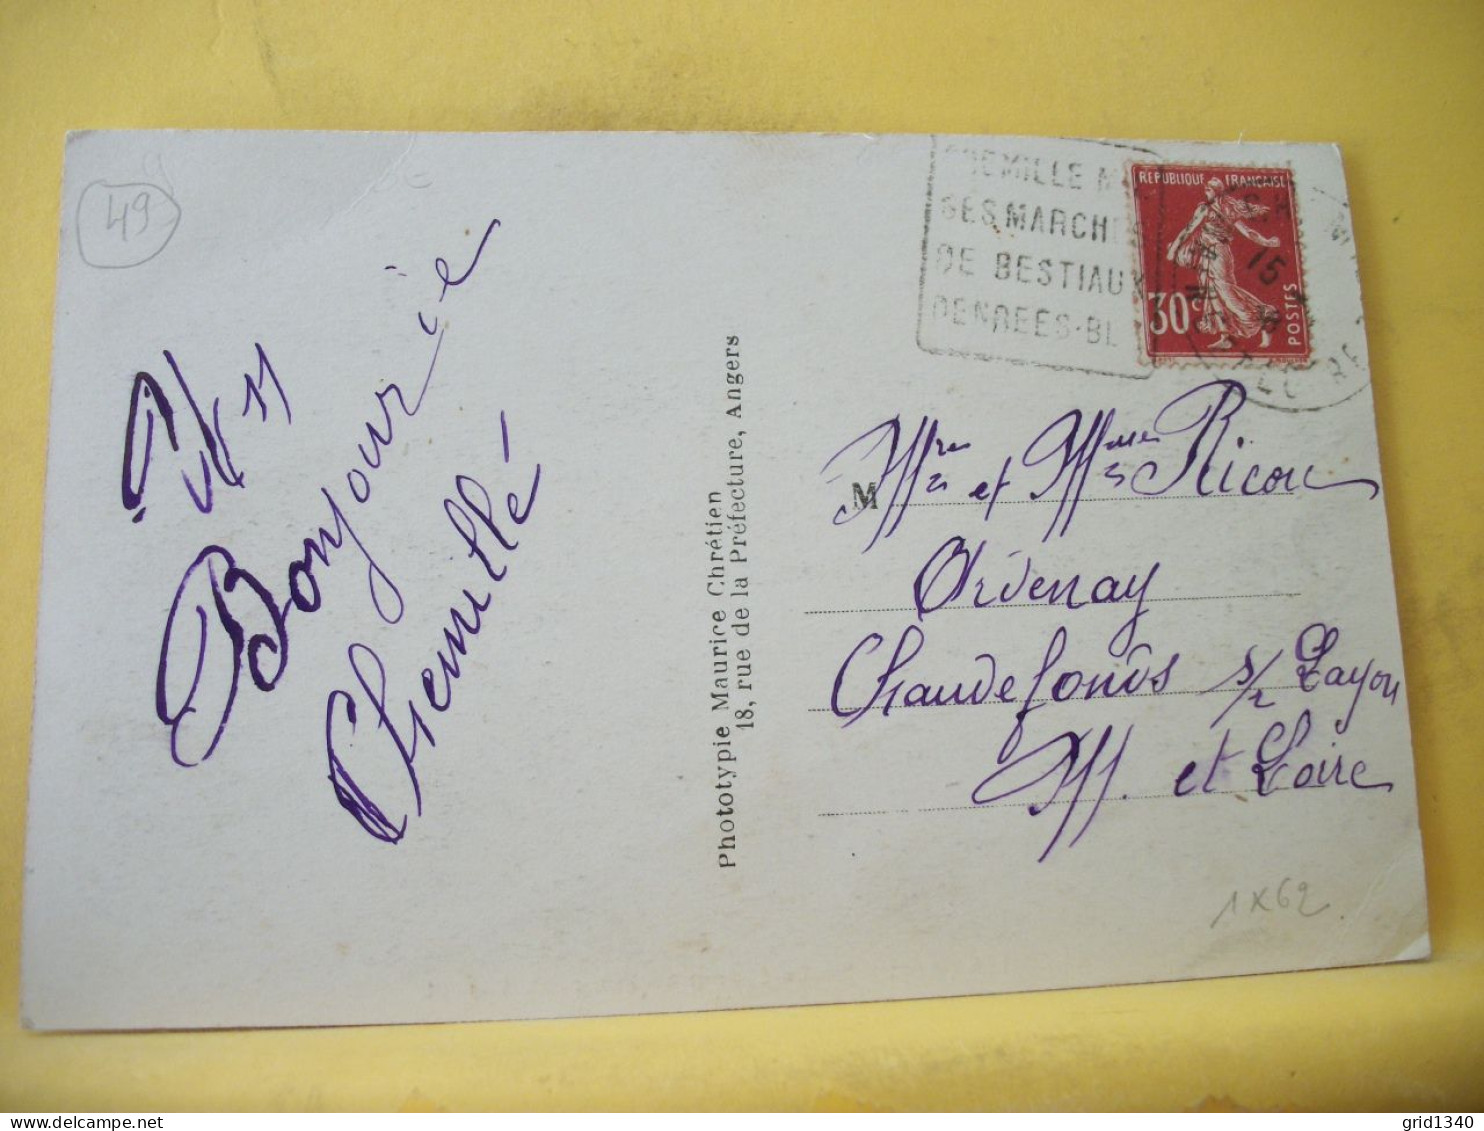 49
Bonjour
de
Chemillé
Phototypie Maurice Chrétien
18, rue de la Préfecture, Angers
CHEMILLE M
SES MARCHES
DE BESTIAUX
DENREES-BL
REPUBLIQUE FRANÇAISE
30c
POSTES
15
M
Mrs et Mmes Ricou
Ardenay
Chaudefonds s/ Layon
M. et Loire
1X62
grid1340